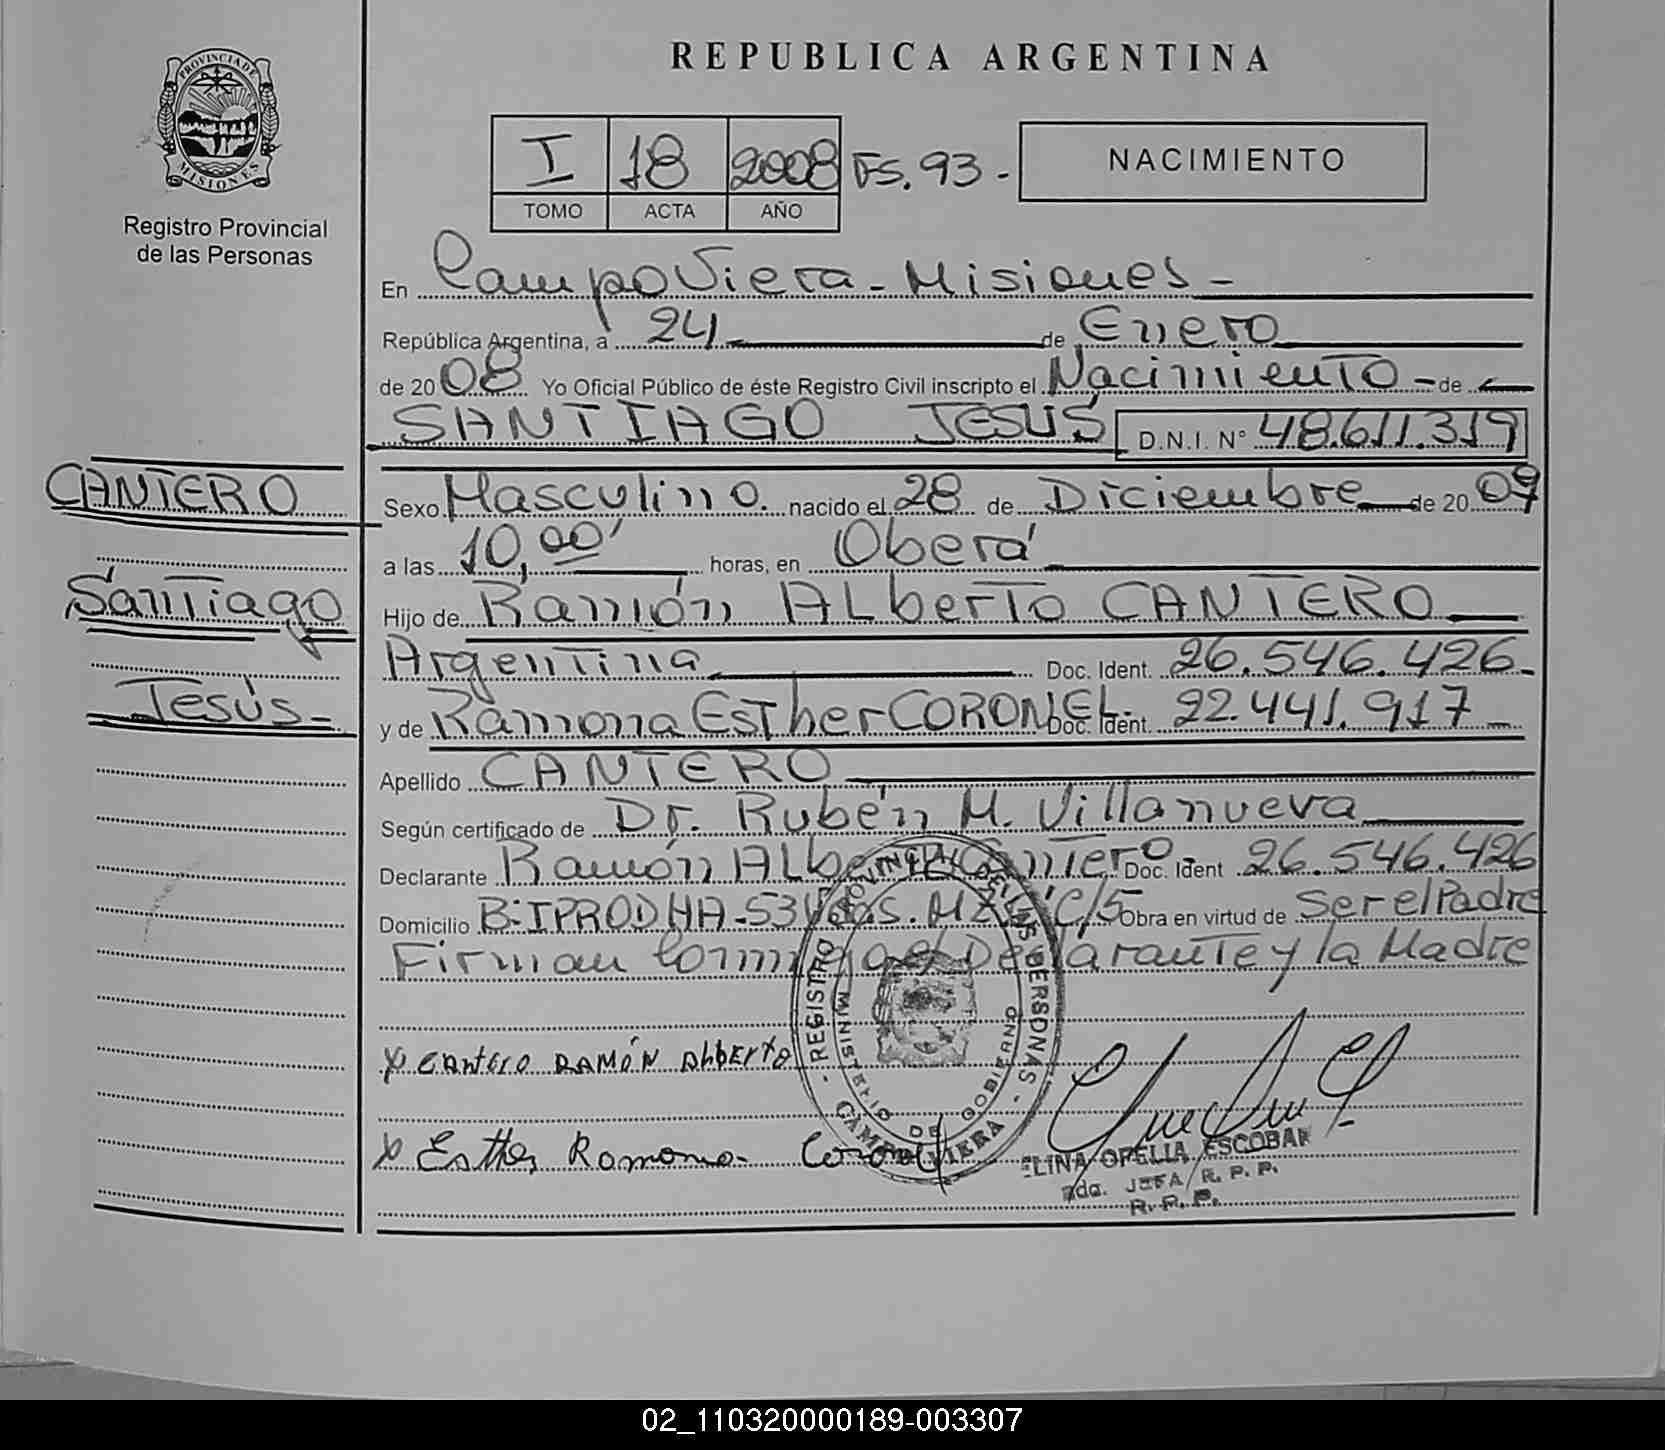 REPUBLICA ARGENTINA
PROVINCIA DE MISIONES
Registro Provincial
de las Personas
I 18 2008 Fs. 93.-
TOMO ACTA AÑO
NACIMIENTO
En Campo Viera - Misiones -
República Argentina, a 24 de Enero
de 2008 Yo Oficial Público de éste Registro Civil inscripto el Nacimiento - de
SANTIAGO JESÚS D.N.I. N° 48.611.319
CANTERO
Santiago
Jesús -
Sexo Masculino. nacido el 28 de Diciembre de 20
a las 10,00' horas, en Oberá
Hijo de Ramón ALberTo CANTERO
ArgenTina Doc. Ident. 26.546.426.-
y de Ramona EsTher CORONEL.- Doc. Ident. 22.441.917 -
Apellido CANTERO
Según certificado de Dr. Rubén M. Villanueva
Declarante Ramón ALberTo CanTero.- Doc. Ident 26.546.426
Domicilio B: IPRODHA - 53 C/5 Obra en virtud de Ser el Padre
Firman Conmigo el Declarante y la Madre
REGISTRO PROVINCIAL DE LAS PERSONAS - CAMPO VIERA -
MINISTERIO DE GOBIERNO
x CANTERO RAMÓN ALBERTO
x Esther Ramona Coronel
ELINA OPELLA ESCOBAR
JEFA R. P. P.
R. P. P.
02_110320000189-003307